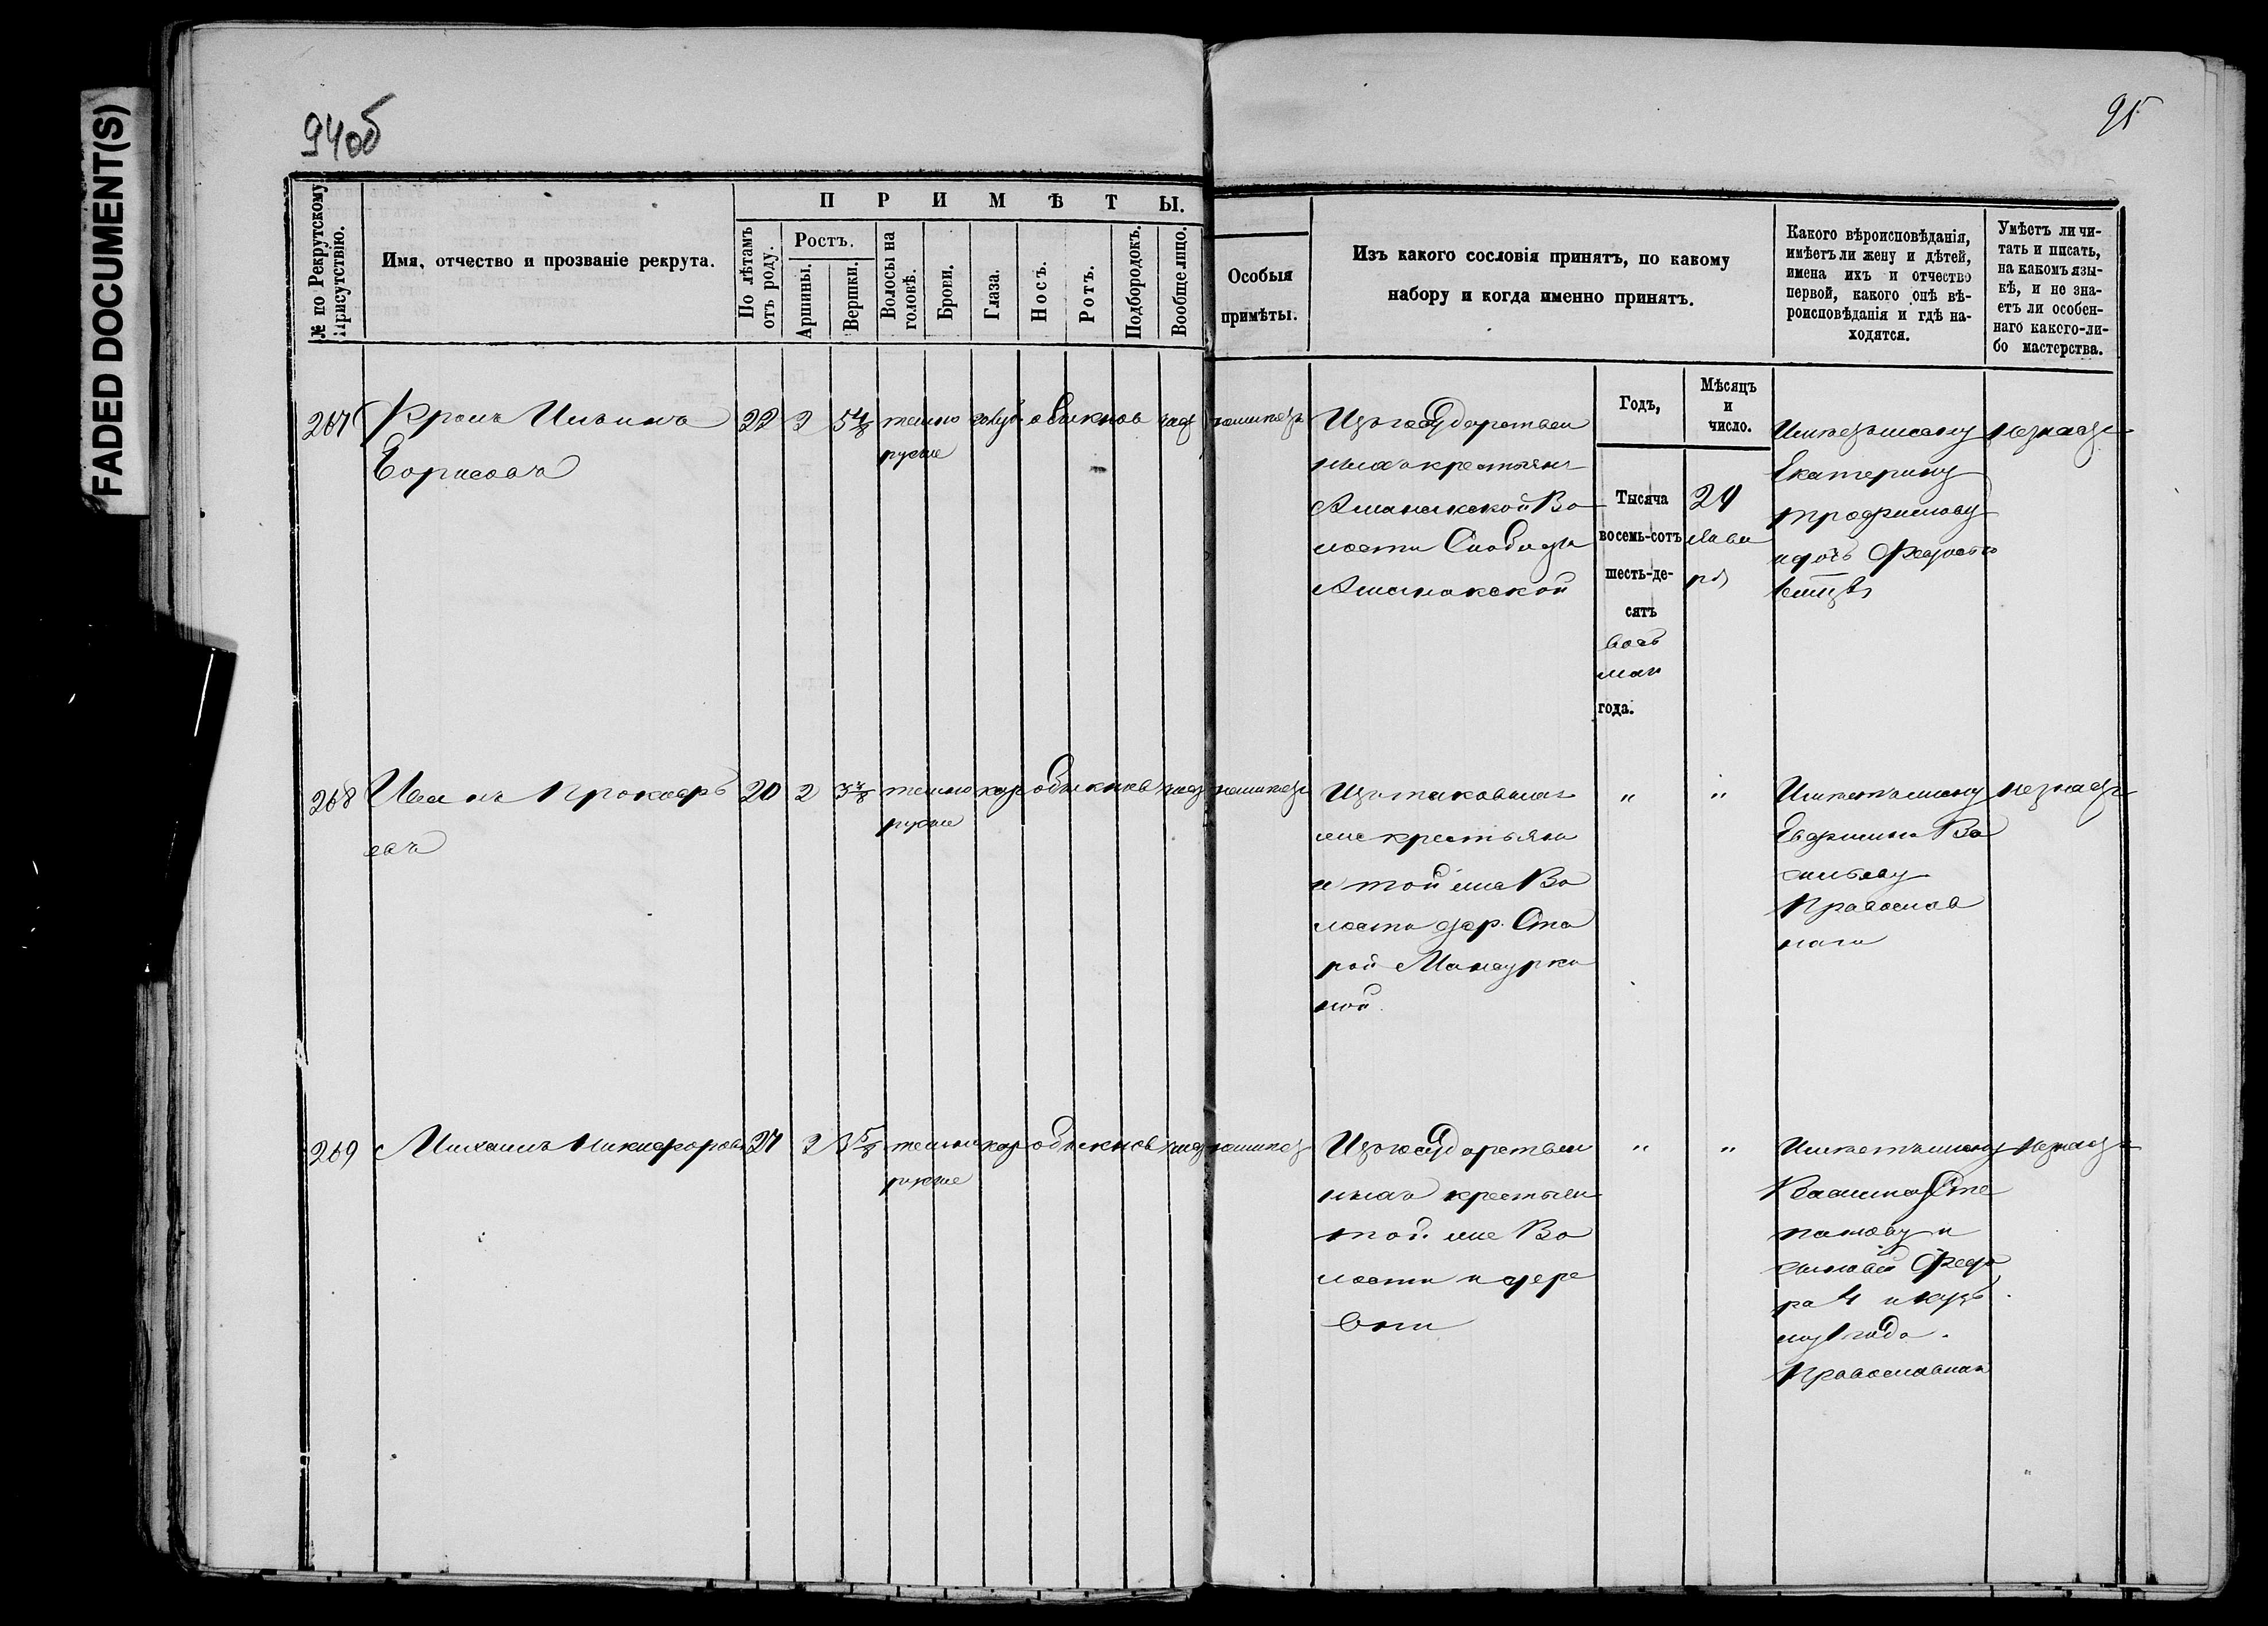 FADED DOCUMENT(S)
94об
95
№ по Рекрутскому
Присутствію.
Имя, отчество и прозваніе рекрута.
ПРИМѢТЫ.
По лѣтамъ
отъ роду.
Ростъ.
Аршины.
Вершки.
Волосы на
головѣ.
Брови.
Глаза.
Носъ.
Ротъ.
Подбородокъ.
Вообще лицо.
Особыя
примѣты.
Изъ какого сословія принятъ, по какому
набору и когда именно принятъ.
Какого вѣроисповѣданія,
имѣетъ ли жену и дѣтей,
имена ихъ и отчество
первой, какого онѣ вѣ-
роисповѣданія и гдѣ на-
ходятся.
Умѣетъ ли чи-
тать и писать,
на какомъ язы-
кѣ, и не зна-
етъ ли особен-
наго какого-ли-
бо мастерства.
Годъ,
Мѣсяцъ
и
число.
267
22 2 5 4/8 темно
русые
Борисовъ
Изъ государствен
ныхъ крестьянъ
Аманакской Во
лости Слободы
Аманакской
Тысяча
восемь-сотъ
шесть-де-
сятъ
вось
мая
года.
24
Янва
ря
Имѣетъ жену
Екатерину
Трофимову
и дочь
незнаетъ
268 Иванъ Прокофь
евъ
20 2 3 темно кар обыкнов
русые
Изъ таковыхъ
же крестьянъ
и той же Во
лости дер. Ста
рой Мансурки
ной.
" "
Имѣетъ жену
Евфимію Ва
сильеву
Православ
ная
незнаетъ
269 Михаилъ Никифоровъ 27 2 3 5/8 темно кар обыкнов
русые
Изъ государствен
ныхъ крестьян
той же Во
лости и дере
вни
" "
Имѣетъ жену
Сте
панову и
сыновей Федо
ра 4 и Кузь
му 1 года.
Православная
незнаетъ